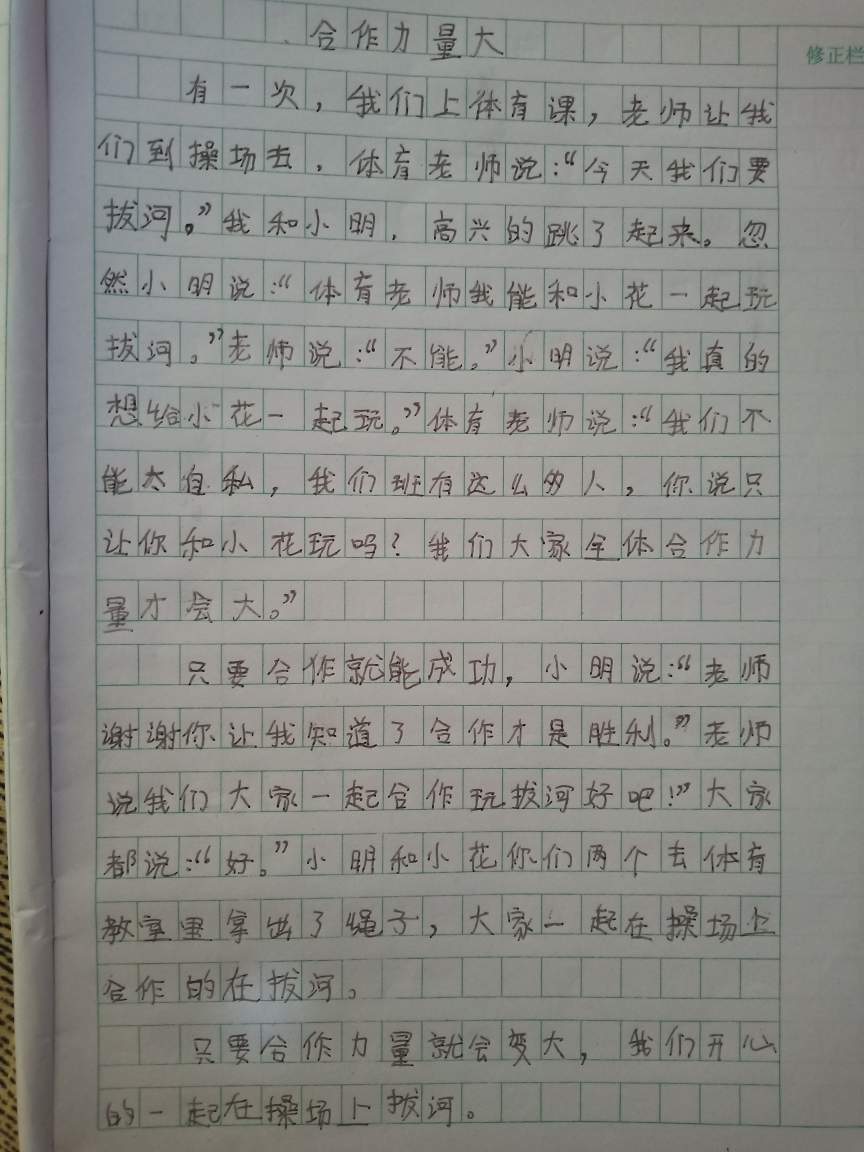 修正栏
合作力量大
有一次，我们上体育课，老师让我
们到操场去，体育老师说：“今天我们要
拔河。”我和小明，高兴的跳了起来。忽
然小明说：“体育老师我能和小花一起玩
拔河。”老师说：“不能。”小明说：“我真的
想给小花一起玩。”体育老师说：“我们不
能太自私，我们班有这么多人，你说只
让你和小花玩吗？我们大家全体合作力
量才会大。”
只要合作就能成功，小明说：“老师
谢谢你让我知道了合作才是胜利。”老师
说我们大家一起合作玩拔河好吧！”大家
都说：“好。”小明和小花你们两个去体育
教室里拿出了绳子，大家一起在操场上
合作的在拔河。
只要合作力量就会变大，我们开心
的一起在操场上拔河。